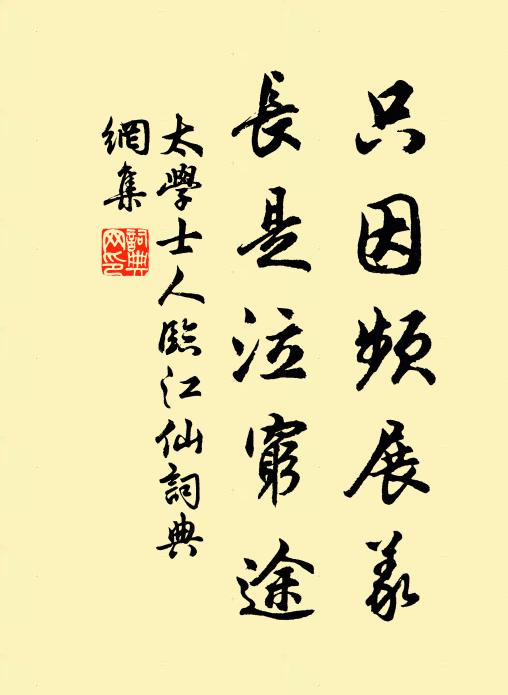 只因頻展義
長是泣窮途
太學士人臨江仙詞典
網集
詞典網印